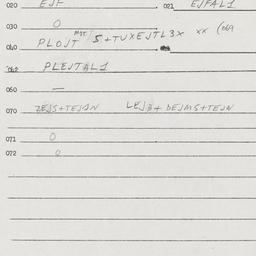 020 EJF 021 EJFAL1
030 O
MST
040 PLOJT S+TUXEJTL3X XX (069
042 PLEJTAL1
060 —
070 ZEJS+TEJSN LEJ3+DEJMS+TEJN
071 O
072 O